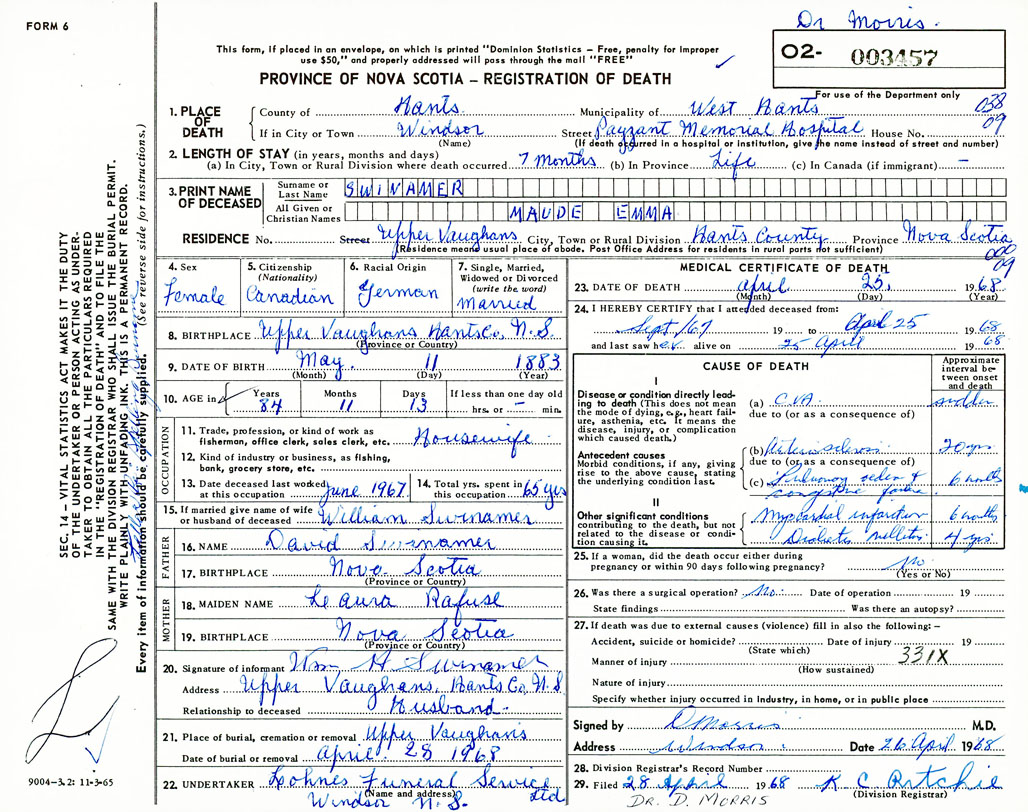 FORM 6
Dr Morris.
This form, if placed in an envelope, on which is printed "Dominion Statistics – Free, penalty for improper
use $50," and properly addressed will pass through the mail "FREE"
O2- 003457
PROVINCE OF NOVA SCOTIA – REGISTRATION OF DEATH
For use of the Department only
038
09
1. PLACE OF DEATH
County of Hants Municipality of West Hants
If in City or Town Windsor Street Payzant Memorial Hospital House No.
(Name) (If death occurred in a hospital or institution, give the name instead of street and number)
2. LENGTH OF STAY (in years, months and days)
(a) In City, Town or Rural Division where death occurred 7 months (b) In Province Life (c) In Canada (if immigrant) –
3. PRINT NAME OF DECEASED
Surname or Last Name SWINAMER
All Given or Christian Names MAUDE EMMA
RESIDENCE No. Street Upper Vaughans City, Town or Rural Division Hants County Province Nova Scotia
(Residence means usual place of abode. Post Office Address for residents in rural parts not sufficient)
000
09
4. Sex Female
5. Citizenship (Nationality) Canadian
6. Racial Origin German
7. Single, Married, Widowed or Divorced (write the word) Married
8. BIRTHPLACE Upper Vaughans Hants Co, N.S.
(Province or Country)
9. DATE OF BIRTH May 11 1883
(Month) (Day) (Year)
10. AGE in Years 84 Months 11 Days 13 If less than one day old hrs. or – min.
OCCUPATION
11. Trade, profession, or kind of work as fisherman, office clerk, sales clerk, etc. Housewife
12. Kind of industry or business, as fishing, bank, grocery store, etc.
13. Date deceased last worked at this occupation June 1967
14. Total yrs. spent in this occupation 65 yrs
15. If married give name of wife or husband of deceased William Swinamer
FATHER
16. NAME David Swinamer
17. BIRTHPLACE Nova Scotia
(Province or Country)
MOTHER
18. MAIDEN NAME Leaura Rafuse
19. BIRTHPLACE Nova Scotia
(Province or Country)
20. Signature of informant Wm H Swinamer
Address Upper Vaughans, Hants Co, N.S.
Relationship to deceased Husband.
21. Place of burial, cremation or removal Upper Vaughans
Date of burial or removal April 28 1968
22. UNDERTAKER Lohnes Funeral Service Ltd
(Name and address)
Windsor N.S.
MEDICAL CERTIFICATE OF DEATH
23. DATE OF DEATH April 25, 1968
(Month) (Day) (Year)
24. I HEREBY CERTIFY that I attended deceased from:
Sept/67 19 to April 25 1968
and last saw her alive on 25 April 1968
CAUSE OF DEATH
Approximate interval between onset and death
I
Disease or condition directly leading to death (This does not mean the mode of dying, e.g., heart failure, asthenia, etc. It means the disease, injury, or complication which caused death.)
(a) C.V.A. sudden
due to (or as a consequence of)
Antecedent causes
Morbid conditions, if any, giving rise to the above cause, stating the underlying condition last.
(b) Arteriosclerosis 20 yrs
due to (or as a consequence of)
(c) Pulmonary oedema & congestive failure 6 months
II
Other significant conditions contributing to the death, but not related to the disease or condition causing it.
Myocardial infarction 6 months
Diabetes mellitus 4 yrs
25. If a woman, did the death occur either during pregnancy or within 90 days following pregnancy? No
(Yes or No)
26. Was there a surgical operation? No. Date of operation 19
State findings Was there an autopsy?
27. If death was due to external causes (violence) fill in also the following:–
Accident, suicide or homicide? Date of injury 19
(State which)
331X
Manner of injury
(How sustained)
Nature of injury
Specify whether injury occurred in Industry, in home, or in public place
Signed by D Morris M.D.
Address Windsor Date 26 April 1968
28. Division Registrar's Record Number
29. Filed 28 April 1968 K C Ritchie
(Division Registrar)
DR. D. MORRIS
SEC. 14 – VITAL STATISTICS ACT MAKES IT THE DUTY
OF THE UNDERTAKER OR PERSON ACTING AS UNDER-
TAKER "TO OBTAIN ALL THE PARTICULARS REQUIRED
IN THE "REGISTRATION OF DEATH" AND TO FILE THE
SAME WITH THE DIVISION REGISTRAR WHO SHALL ISSUE THE BURIAL PERMIT.
WRITE PLAINLY WITH UNFADING INK. THIS IS A PERMANENT RECORD.
Every item of information should be carefully supplied. (See reverse side for instructions.)
9004-3.2: 11-3-65